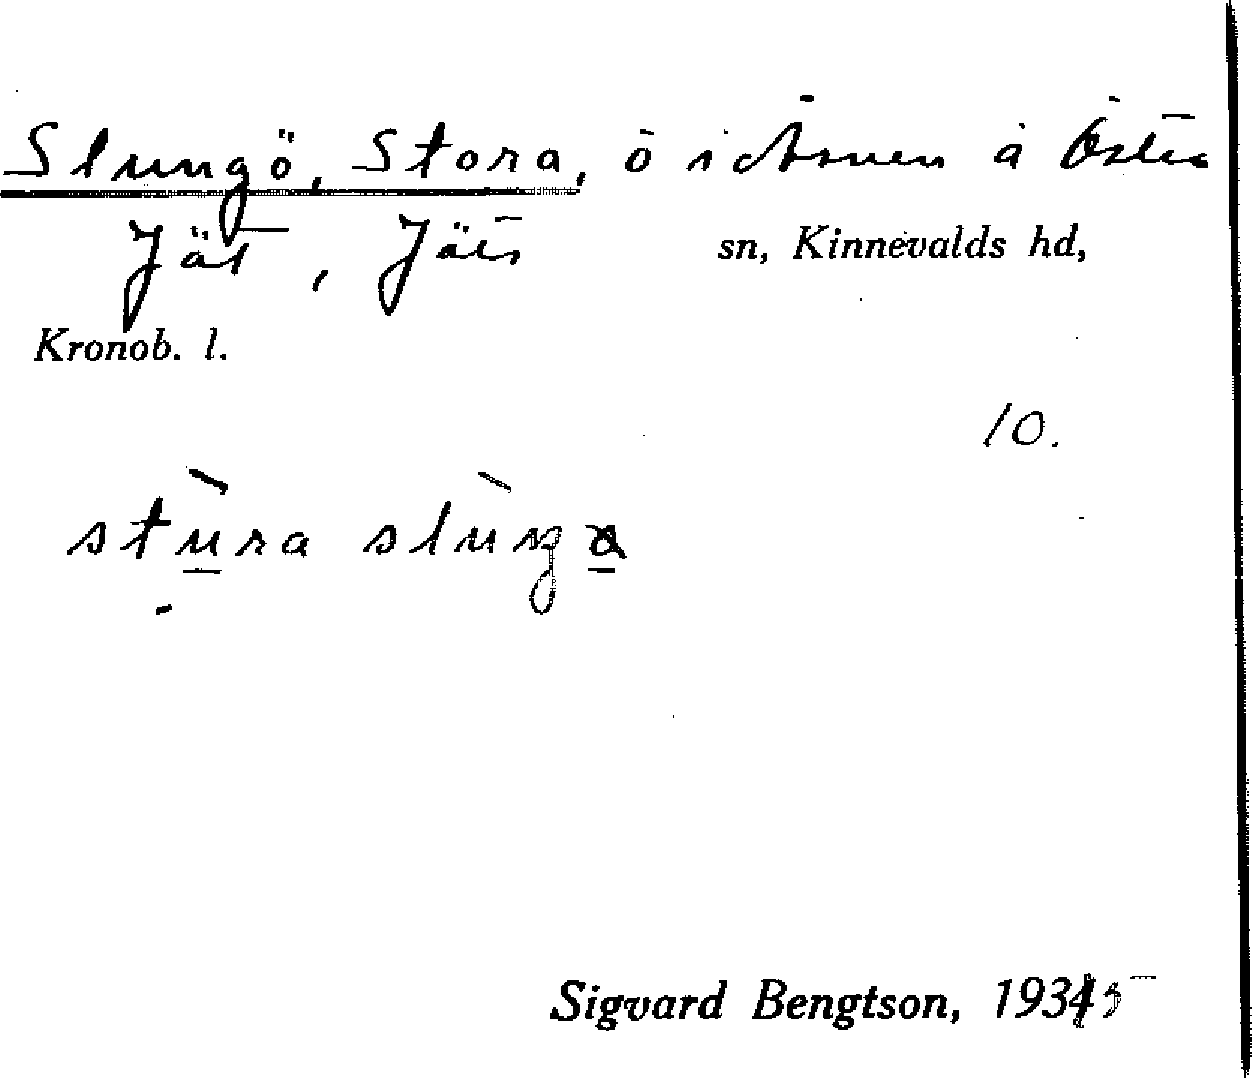 Slungö, Stora, ö i Åsnen å Östra
Jät, Jäts sn, Kinnevalds hd,
Kronob. l.
10.
stùra slùŋɢ
Sigvard Bengtson, 1935